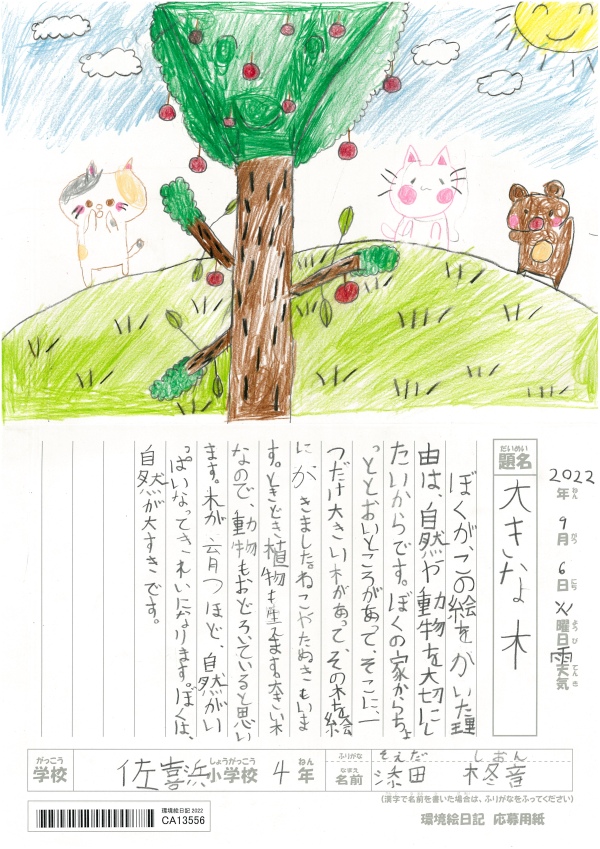 2022年 9月 6日 火曜日 天気 雨
ねん がつ にち ようび てんき
だいめい
題名
大きな木
ぼくが、この絵をかいた理
由は、自然や動物を大切にし
たいからです。ぼくの家からちょ
っととおいところがあって、そこに、一
つだけ大きい木があって、その木を絵
にがきました。ねこやたぬきもいま
す。ときどき植物も産えます。大きい木
なので、動物もおどろいていると思い
ます。木が、育つほど、自然がい
っぱいなってきれいになります。ぼくは、
自然が大すきです。
がっこう
学校
佐喜浜
しょうがっこう
小学校
4
ねん
年
ふりがな
そえだ しおん
なまえ
名前
添田 柊音
(漢字で名前を書いた場合は、ふりがなをふってください)
環境絵日記 2022
CA13556
環境絵日記 応募用紙